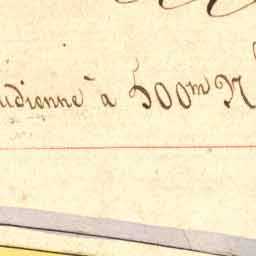 udienne à 500m N